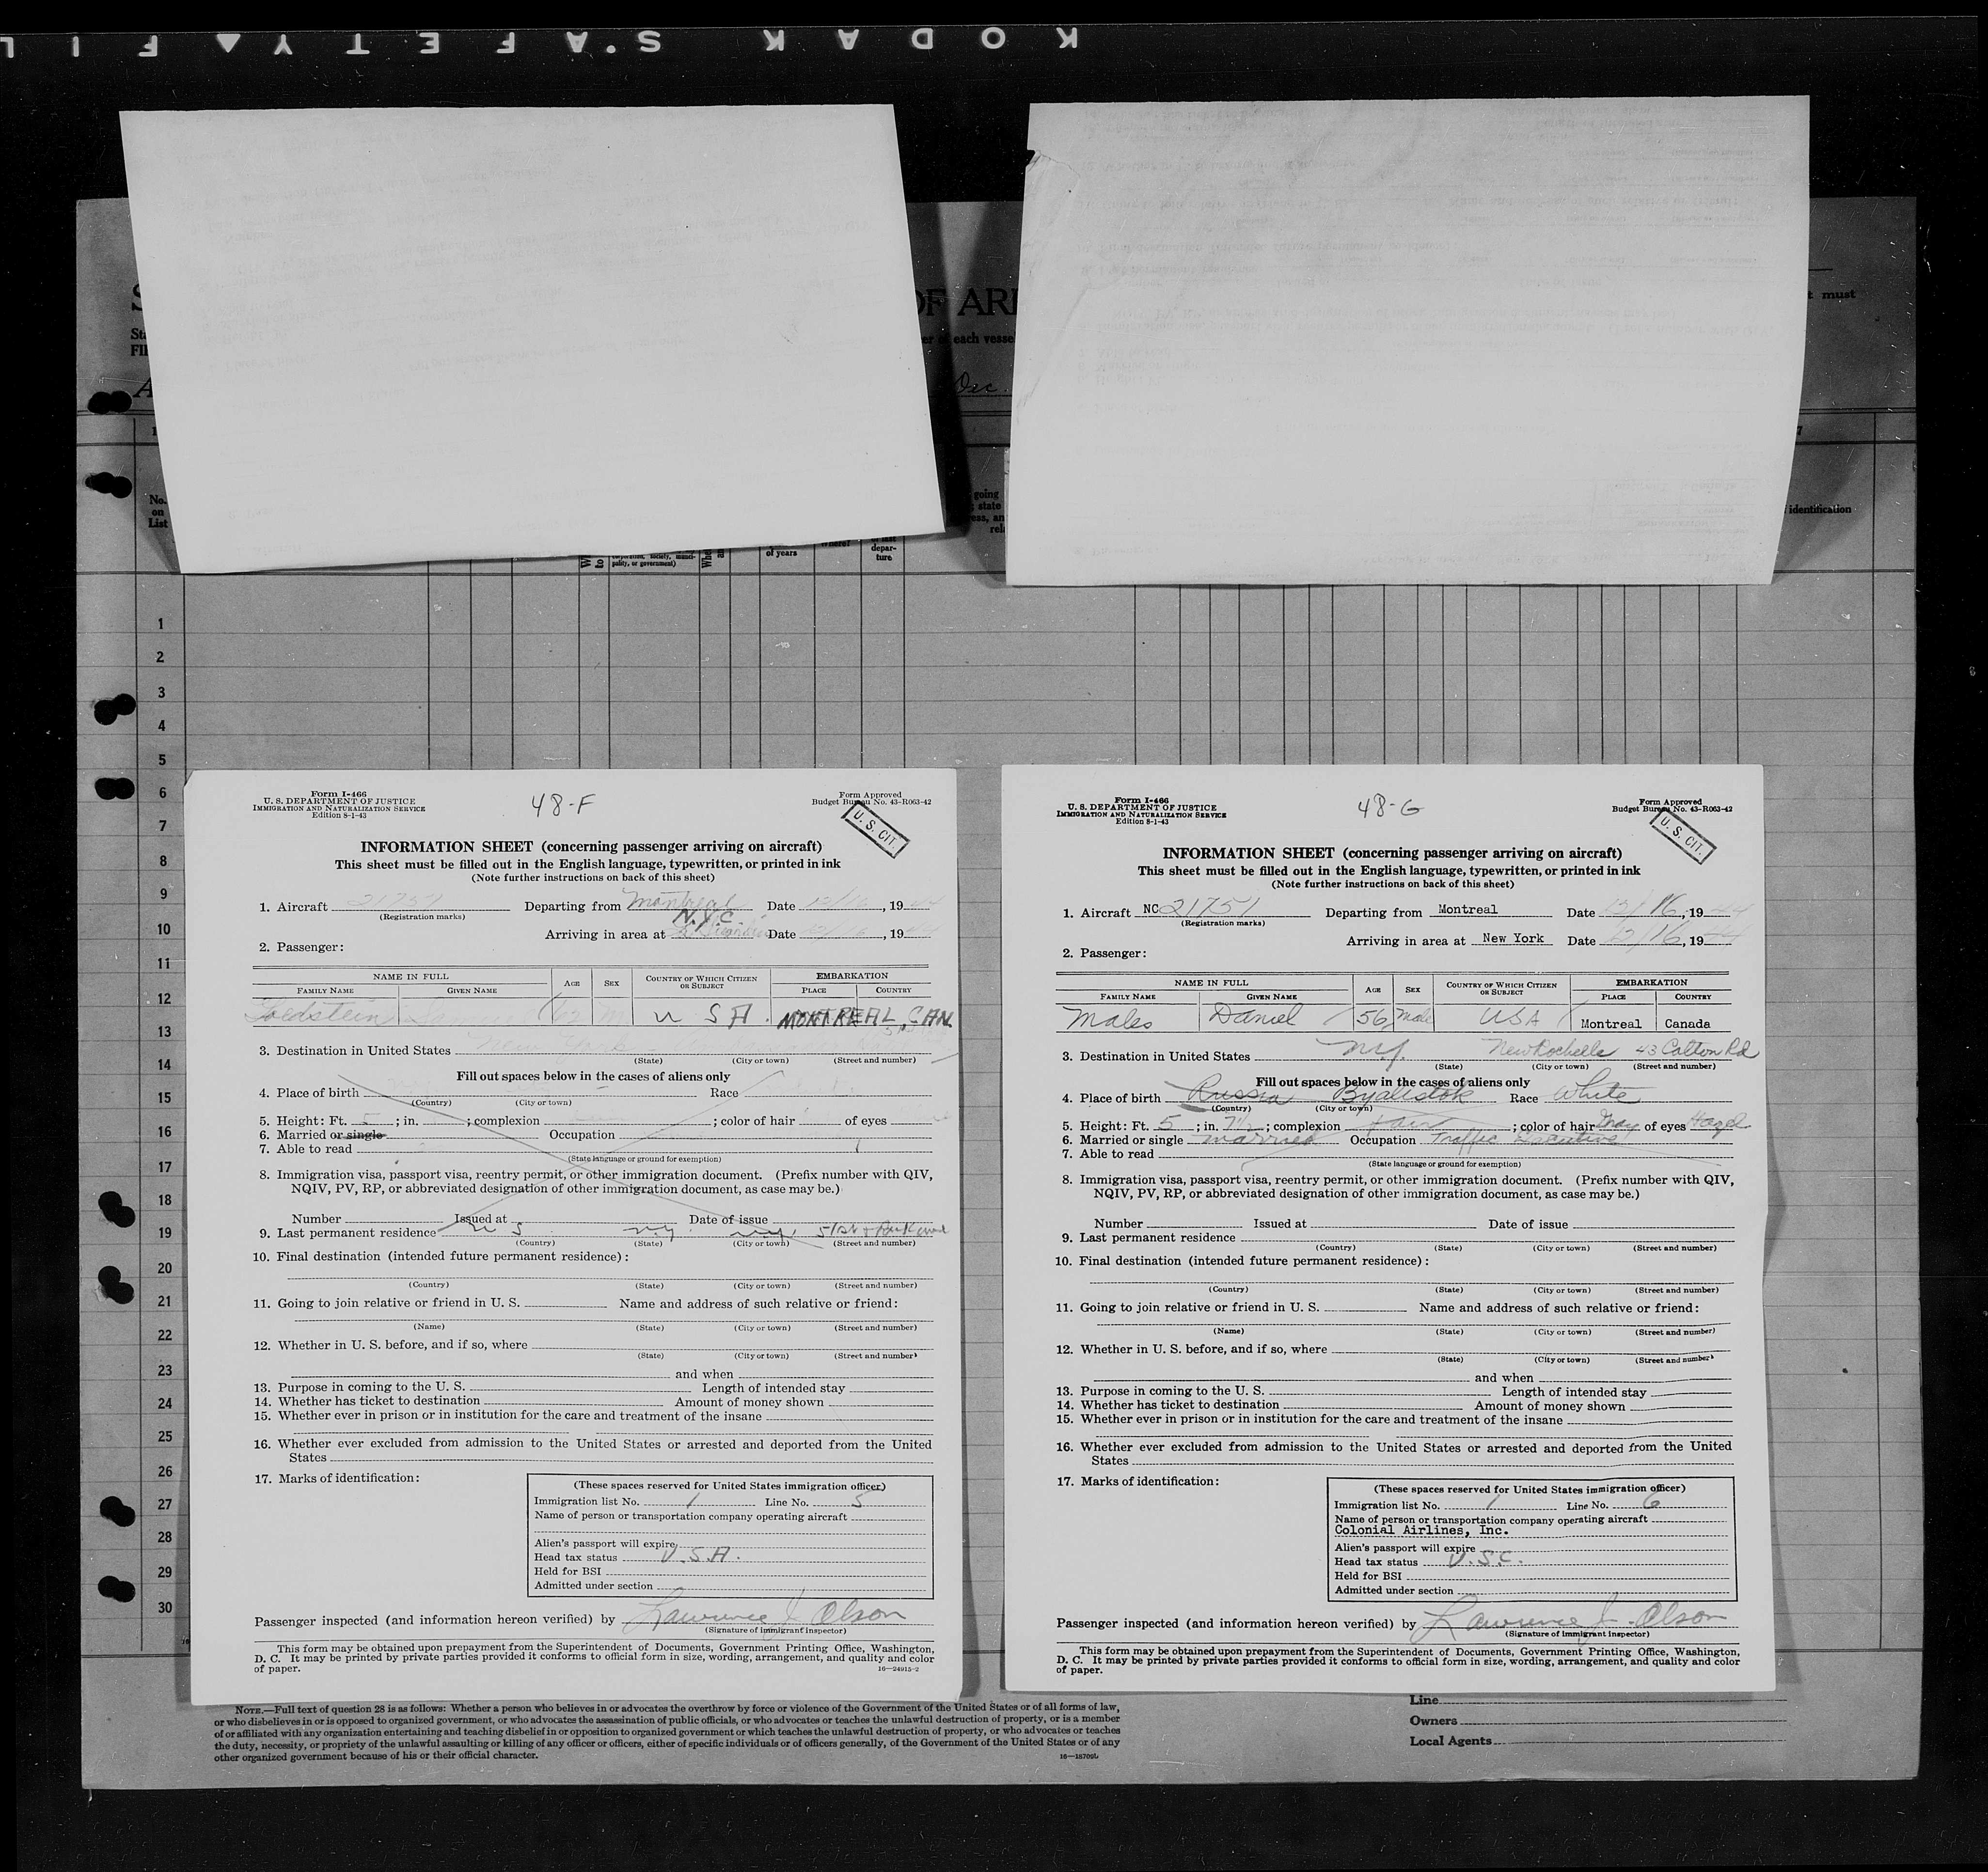 KODAK SAFETY FIL
OF ARI
each vesse
must
Dec.
No.
on
List
going
state
identification
of years
depar-
ture
pality, or government)
1
2
3
4
5
6
7
8
9
10
11
12
13
14
15
16
17
18
19
20
21
22
23
24
25
26
27
28
29
30
Form I-466
U. S. DEPARTMENT OF JUSTICE
IMMIGRATION AND NATURALIZATION SERVICE
Edition 8-1-43
48-F
Form Approved
Budget Bureau No. 43-R063-42
U. S. CIT.
INFORMATION SHEET (concerning passenger arriving on aircraft)
This sheet must be filled out in the English language, typewritten, or printed in ink
(Note further instructions on back of this sheet)
1. Aircraft 21751 Departing from Montreal Date 12/16, 1944
(Registration marks)
N.Y.C.
Arriving in area at Date 12/16, 1944
2. Passenger:
NAME IN FULL AGE SEX COUNTRY OF WHICH CITIZEN OR SUBJECT EMBARKATION
FAMILY NAME GIVEN NAME PLACE COUNTRY
Goldstein 62 m U S A. MONTREAL, CAN.
3. Destination in United States New York
(State) (City or town) (Street and number)
Fill out spaces below in the cases of aliens only
4. Place of birth Race
(Country) (City or town)
5. Height: Ft. 5; in. ; complexion ; color of hair of eyes
6. Married or single Occupation
7. Able to read
(State language or ground for exemption)
8. Immigration visa, passport visa, reentry permit, or other immigration document. (Prefix number with QIV,
NQIV, PV, RP, or abbreviated designation of other immigration document, as case may be.)
Number Issued at Date of issue
9. Last permanent residence U S N.Y. N.Y. 51st & Park
(Country) (State) (City or town) (Street and number)
10. Final destination (intended future permanent residence):
(Country) (State) (City or town) (Street and number)
11. Going to join relative or friend in U. S. Name and address of such relative or friend:
(Name) (State) (City or town) (Street and number)
12. Whether in U. S. before, and if so, where
(State) (City or town) (Street and number)
and when
13. Purpose in coming to the U. S. Length of intended stay
14. Whether has ticket to destination Amount of money shown
15. Whether ever in prison or in institution for the care and treatment of the insane
16. Whether ever excluded from admission to the United States or arrested and deported from the United
States
17. Marks of identification:
(These spaces reserved for United States immigration officer)
Immigration list No. 1 Line No. 5
Name of person or transportation company operating aircraft
Alien's passport will expire
Head tax status U.S.A.
Held for BSI
Admitted under section
Passenger inspected (and information hereon verified) by Lawrence J. Olson
(Signature of immigrant inspector)
This form may be obtained upon prepayment from the Superintendent of Documents, Government Printing Office, Washington,
D. C. It may be printed by private parties provided it conforms to official form in size, wording, arrangement, and quality and color
of paper. 16—24915-2
Form I-466
U. S. DEPARTMENT OF JUSTICE
IMMIGRATION AND NATURALIZATION SERVICE
Edition 8-1-43
48-G
Form Approved
Budget Bureau No. 43-R063-42
U. S. CIT.
INFORMATION SHEET (concerning passenger arriving on aircraft)
This sheet must be filled out in the English language, typewritten, or printed in ink
(Note further instructions on back of this sheet)
1. Aircraft NC 21751 Departing from Montreal Date 12/16, 1944
(Registration marks)
Arriving in area at New York Date 12/16, 1944
2. Passenger:
NAME IN FULL AGE SEX COUNTRY OF WHICH CITIZEN OR SUBJECT EMBARKATION
FAMILY NAME GIVEN NAME PLACE COUNTRY
Males Daniel 56 Male USA Montreal Canada
3. Destination in United States N.Y. New Rochelle 43 Calton Rd
(State) (City or town) (Street and number)
Fill out spaces below in the cases of aliens only
4. Place of birth Russia Byalistok Race White
(Country) (City or town)
5. Height: Ft. 5; in. 7½; complexion Fair; color of hair Gray of eyes Hazel
6. Married or single married Occupation Traffic Executive
7. Able to read
(State language or ground for exemption)
8. Immigration visa, passport visa, reentry permit, or other immigration document. (Prefix number with QIV,
NQIV, PV, RP, or abbreviated designation of other immigration document, as case may be.)
Number Issued at Date of issue
9. Last permanent residence
(Country) (State) (City or town) (Street and number)
10. Final destination (intended future permanent residence):
(Country) (State) (City or town) (Street and number)
11. Going to join relative or friend in U. S. Name and address of such relative or friend:
(Name) (State) (City or town) (Street and number)
12. Whether in U. S. before, and if so, where
(State) (City or town) (Street and number)
and when
13. Purpose in coming to the U. S. Length of intended stay
14. Whether has ticket to destination Amount of money shown
15. Whether ever in prison or in institution for the care and treatment of the insane
16. Whether ever excluded from admission to the United States or arrested and deported from the United
States
17. Marks of identification:
(These spaces reserved for United States immigration officer)
Immigration list No. 1 Line No. 6
Name of person or transportation company operating aircraft
Colonial Airlines, Inc.
Alien's passport will expire
Head tax status U.S.C.
Held for BSI
Admitted under section
Passenger inspected (and information hereon verified) by Lawrence J. Olson
(Signature of immigrant inspector)
This form may be obtained upon prepayment from the Superintendent of Documents, Government Printing Office, Washington,
D. C. It may be printed by private parties provided it conforms to official form in size, wording, arrangement, and quality and color
of paper.
NOTE.—Full text of question 28 is as follows: Whether a person who believes in or advocates the overthrow by force or violence of the Government of the United States or of all forms of law,
or who disbelieves in or is opposed to organized government, or who advocates the assassination of public officials, or who advocates or teaches the unlawful destruction of property, or is a member
of or affiliated with any organization entertaining and teaching disbelief in or opposition to organized government or which teaches the unlawful destruction of property, or who advocates or teaches
the duty, necessity, or propriety of the unlawful assaulting or killing of any officer or officers, either of specific individuals or of officers generally, of the Government of the United States or of any
other organized government because of his or their official character.
Line
Owners
Local Agents